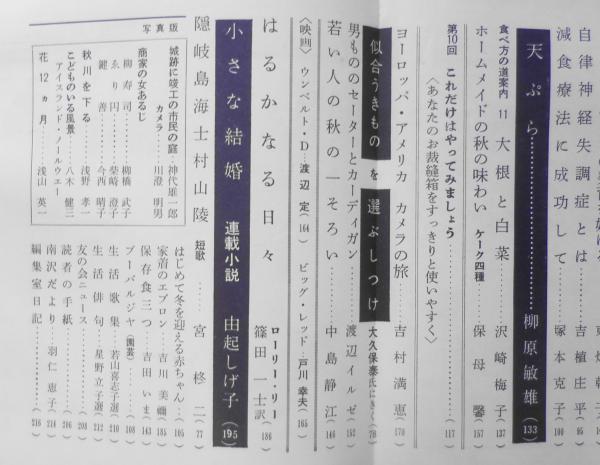 自律神経失調症とは……吉植庄平(95)
減食療法に成功して……塚本克子(100)
天ぷら……柳原敏雄(133)
食べ方の道案内 11 大根と白菜……沢崎梅子(137)
ホームメイドの秋の味わい ケーク四種……保母馨(157)
第10回 これだけはやってみましょう……(117)
〈あなたのお裁縫箱をすっきりと使いやすく〉
ヨーロッパ・アメリカ カメラの旅……吉村満恵(170)
似合うきものを選ぶしつけ 大久保泰氏にきく(70)
男もののセーターとカーディガン……渡辺イルゼ(152)
若い人の秋の一そろい……中島静江(146)
〈映画〉 ウンベルト・D 渡辺定(164) ビッグ・レッド 戸川幸夫(165)
はるかなる日々 ローリー・リー 篠田一士訳(186)
小さな結婚 連載小説 由起しげ子(195)
隠岐島海士村山陵 短歌……宮柊二(77)
はじめて冬を迎える赤ちゃん……(105)
家着のエプロン……吉川美彌(185)
保存食三つ……吉田いま(163)
ブーバルジヤ(園芸)……(108)
生活歌集 若山喜志子選(210)
生活俳句 星野立子選(212)
友の会ニュース……(208)
読者の手紙……(206)
南沢だより……羽仁恵子(214)
編集室日記……(216)
写真版
城跡に竣工の市民の庭……神代雄一郎
カメラ……川澄明男
商家の女あるじ
柳寿司……柳橋武子
ゑり円……柴崎澄子
鍵善……今西晴子
秋川を下る……浅野孝一
こどものいる風景
アイスランド・ノールウエー……八木健三
花12ヵ月……浅山英一